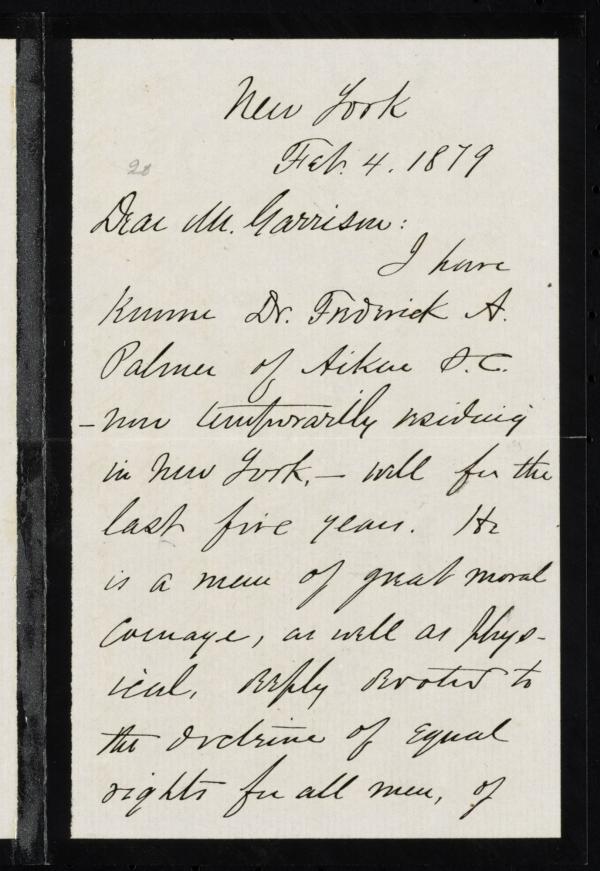 New York
Feb. 4. 1879
28
Dear Mr. Garrison:
I have
known Dr. Frederick A.
Palmer of Aiken S.C.
- now temporarily residing
in New York, - well for the
last five years. He
is a man of great moral
courage, as well as phys-
ical, deeply devoted to
the doctrine of equal
rights for all men, of